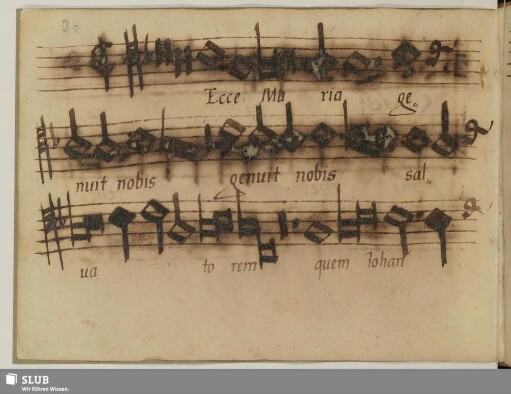 Ecce Ma ria ge„
nuit nobis genuit nobis sal„
ua to rem quem Johan
SLUB
Wir führen Wissen.